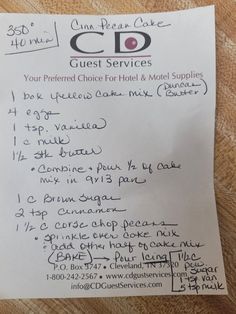 350°
40 min
Cinn Pecan Cake
CD
Guest Services
Your Preferred Choice For Hotel & Motel Supplies
1 box yellow cake mix (Duncan
Butter)
4 eggs
1 tsp. vanilla
1 c milk
1½ stk butter
• Combine + Pour ½ of cake
mix in 9x13 pan
1 c Brown Sugar
2 tsp Cinnamon
1 ½ c corse chop pecans
• sprinkle over cake mix
• add other half of cake mix
(BAKE) → Pour Icing
1½ C
pow
sugar
1 tsp van
5 tsp milk
P.O. Box 5747 • Cleveland, TN 37320
1-800-242-2567 • www.cdguestservices.com
info@CDGuestServices.com